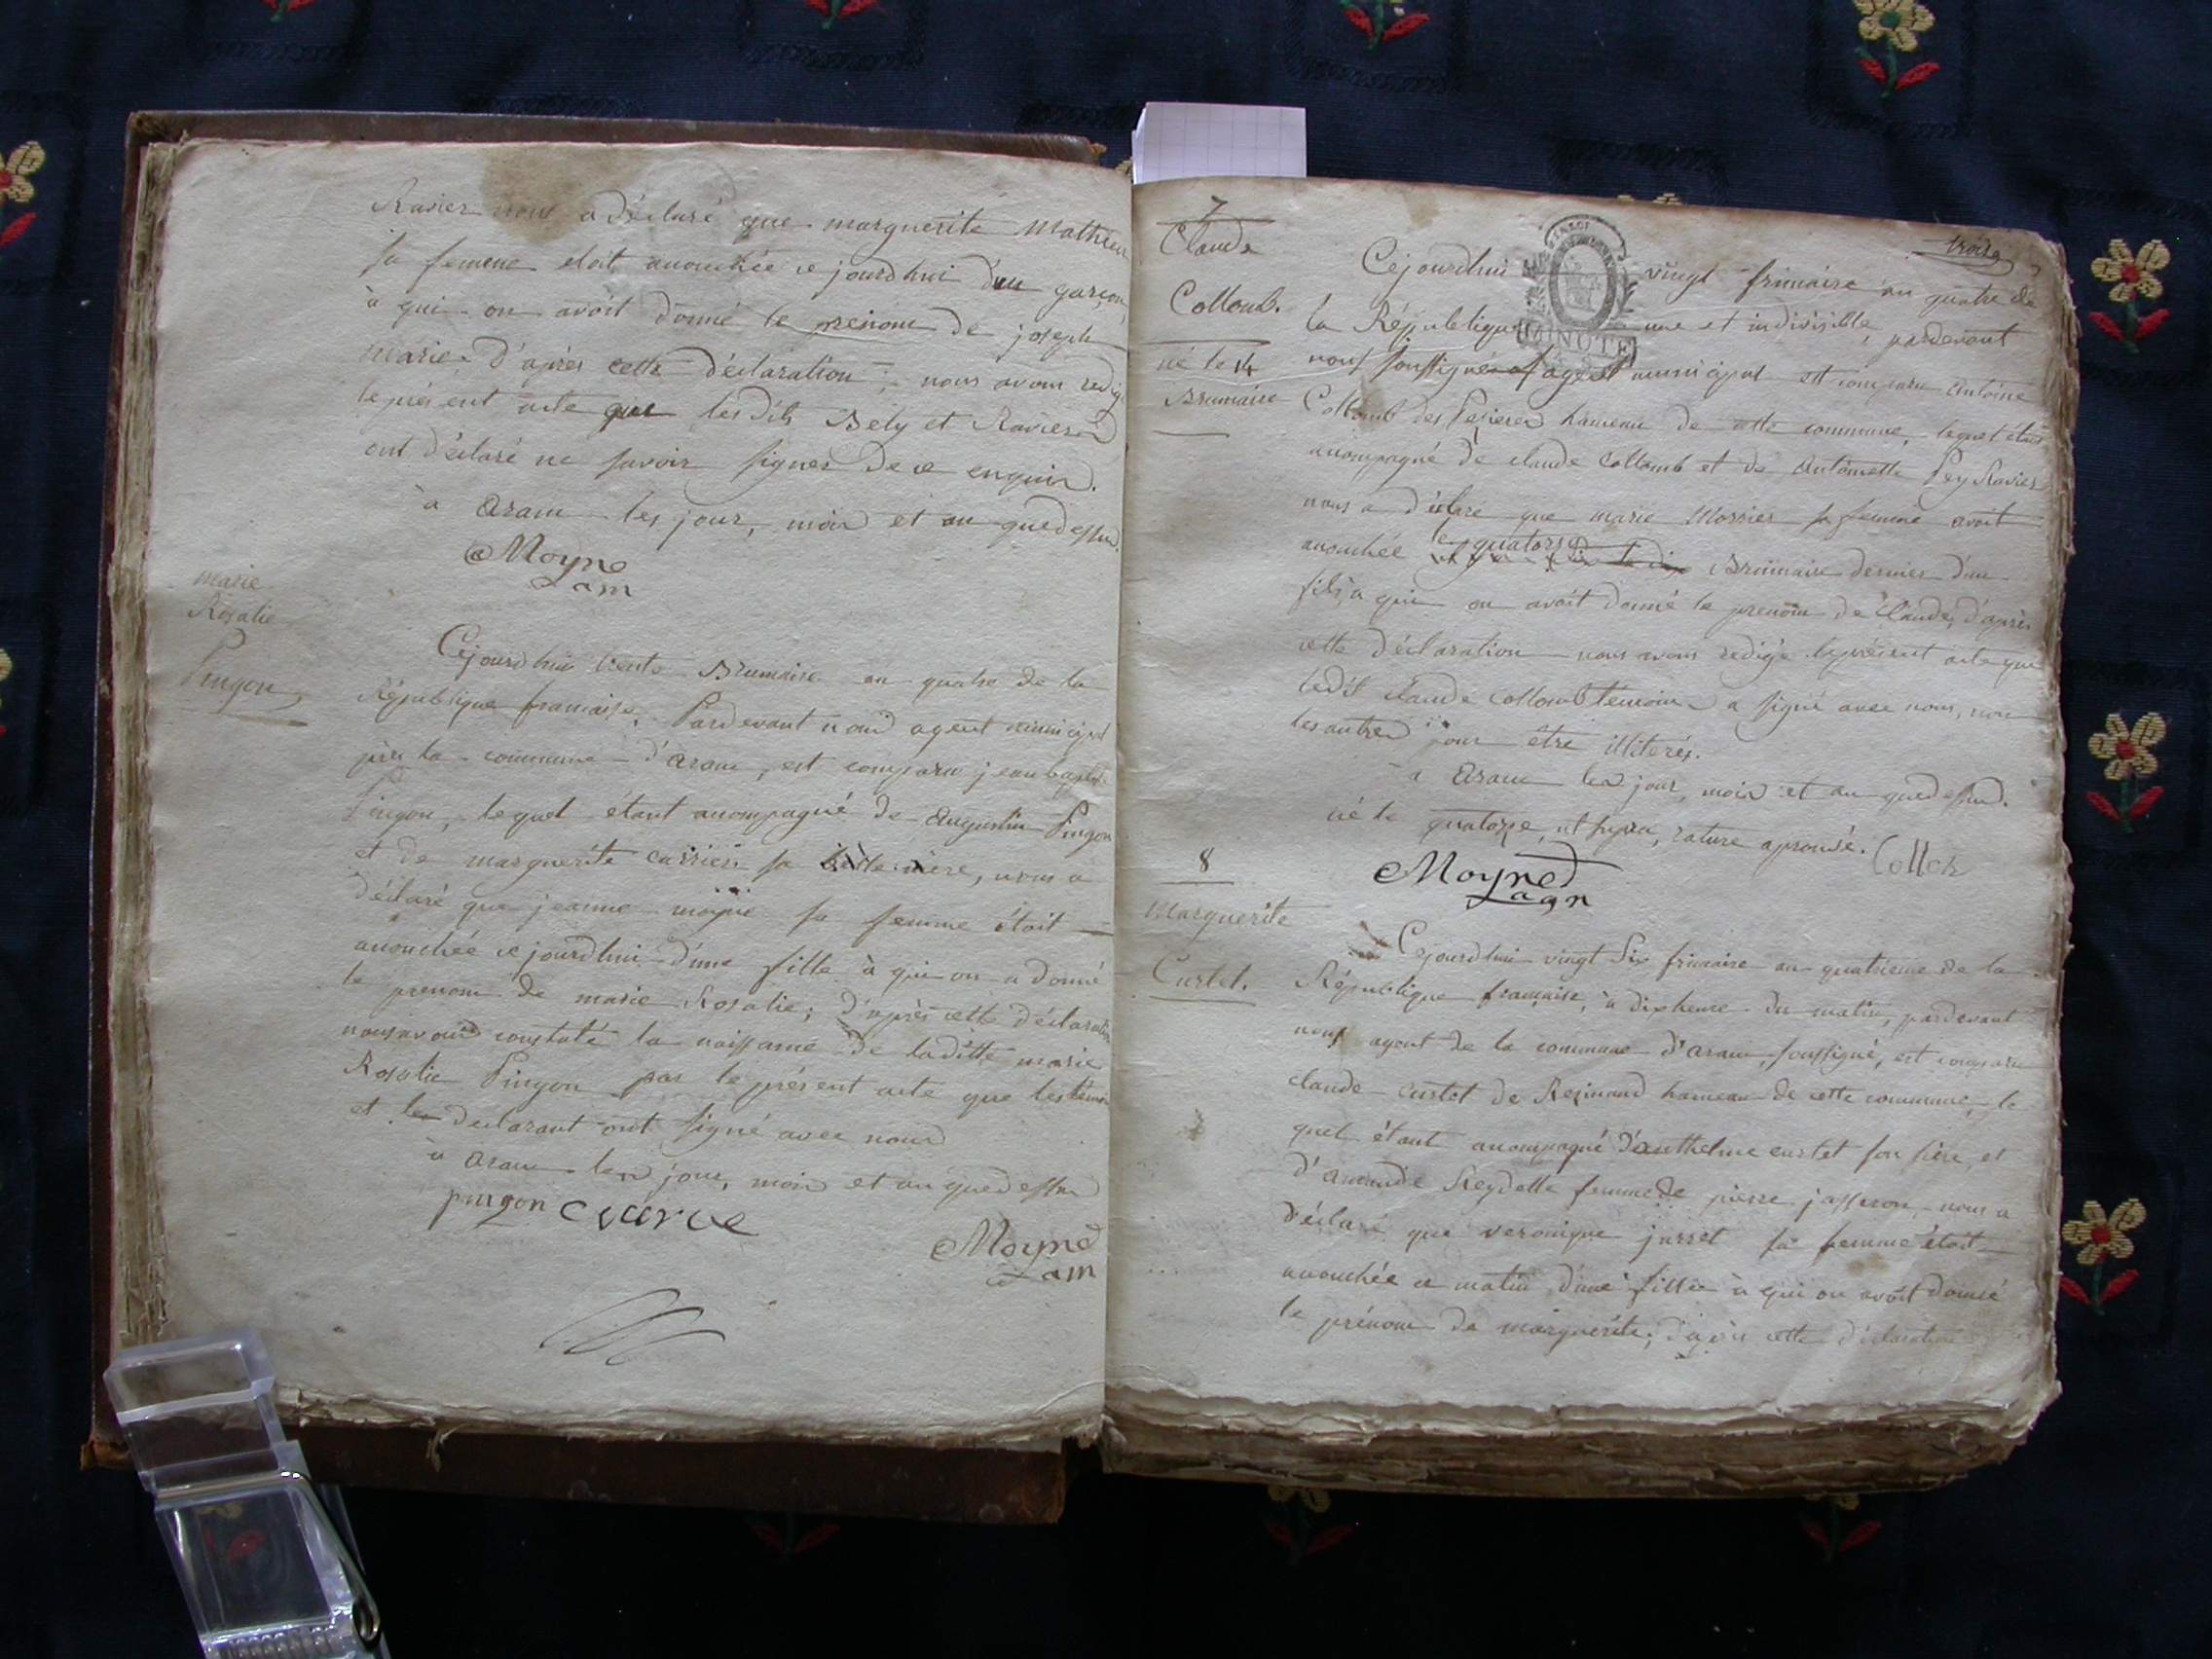 Ravier nous a déclaré que marguerite Mathieu
sa femme etoit accouchée ce jourdhui d'un garçon
à qui on avoit donné le prenom de joseph
marie. D'après cette déclaration, nous avons redigé
le présent acte que les dits Bely et Ravier
ont déclaré ne savoir signer de ce enquis.
à aram les jour, mois et an quedessus.
Moyne
am
marie
Rosalie
Pingon
Cejourdhui trente Brumaire an quatre de la
République francaise, Pardevant nous agent municipal
la commune d'aram, est comparu jean baptiste
Pingon, lequel étant accompagné de Augustin Pingon
et de marguerite carrier sa mere, nous a
déclaré que jeanne moyne sa femme étoit
accouchée ce jourdhui d'une fille à qui on a donné
le prenom de marie Rosalie; d'après cette déclaration
nous avons constaté la naissance de laditte marie
Rosalie Pingon par le présent acte que les temoins
et le declarant ont signé avec nous
à aram les jour, mois et an quedessus
pingon
Moyne
am
7
Claude
Collomb.
né le 14
Brumaire
trois
Cejourdhui vingt frimaire an quatre de
la République une et indivisible, pardevant
MINUTE
nous soussigné agent municipal est comparu antoine
Collomb des hameau de cette commune, lequel étant
accompagné de claude Collomb et de Antoinette Pey Ravier
nous a déclaré que marie Mossier sa femme avoit
accouchée le quatorze Brumaire dernier d'un
fils, a qui on avoit donné le prenom de Claude, d'après
cette déclaration nous avons redigé le présent acte que
ledit claude Collomb témoin a signé avec nous, non
les autres pour être illiterés.
à aram les jour, mois et an quedessus.
né le quatorze, ut supra, rature aprouvé.
Moyne
agn
8
Marguerite
Curtet.
Cejourdhui vingt six frimaire an quatrieme de la
République française, à dix heure du matin, pardevant
nous agent de la commune d'aram soussigné, est comparu
claude curtet de hameau de cette commune, le
quel étant accompagné d'anthelme curtet son père, et
d'amandе Reydelle femme de pierre josseron, nous a
déclaré que veronique jusset sa femme étoit
accouchée ce matin d'une fille à qui on avoit donné
le prénom de marguerite; d'après cette déclaration